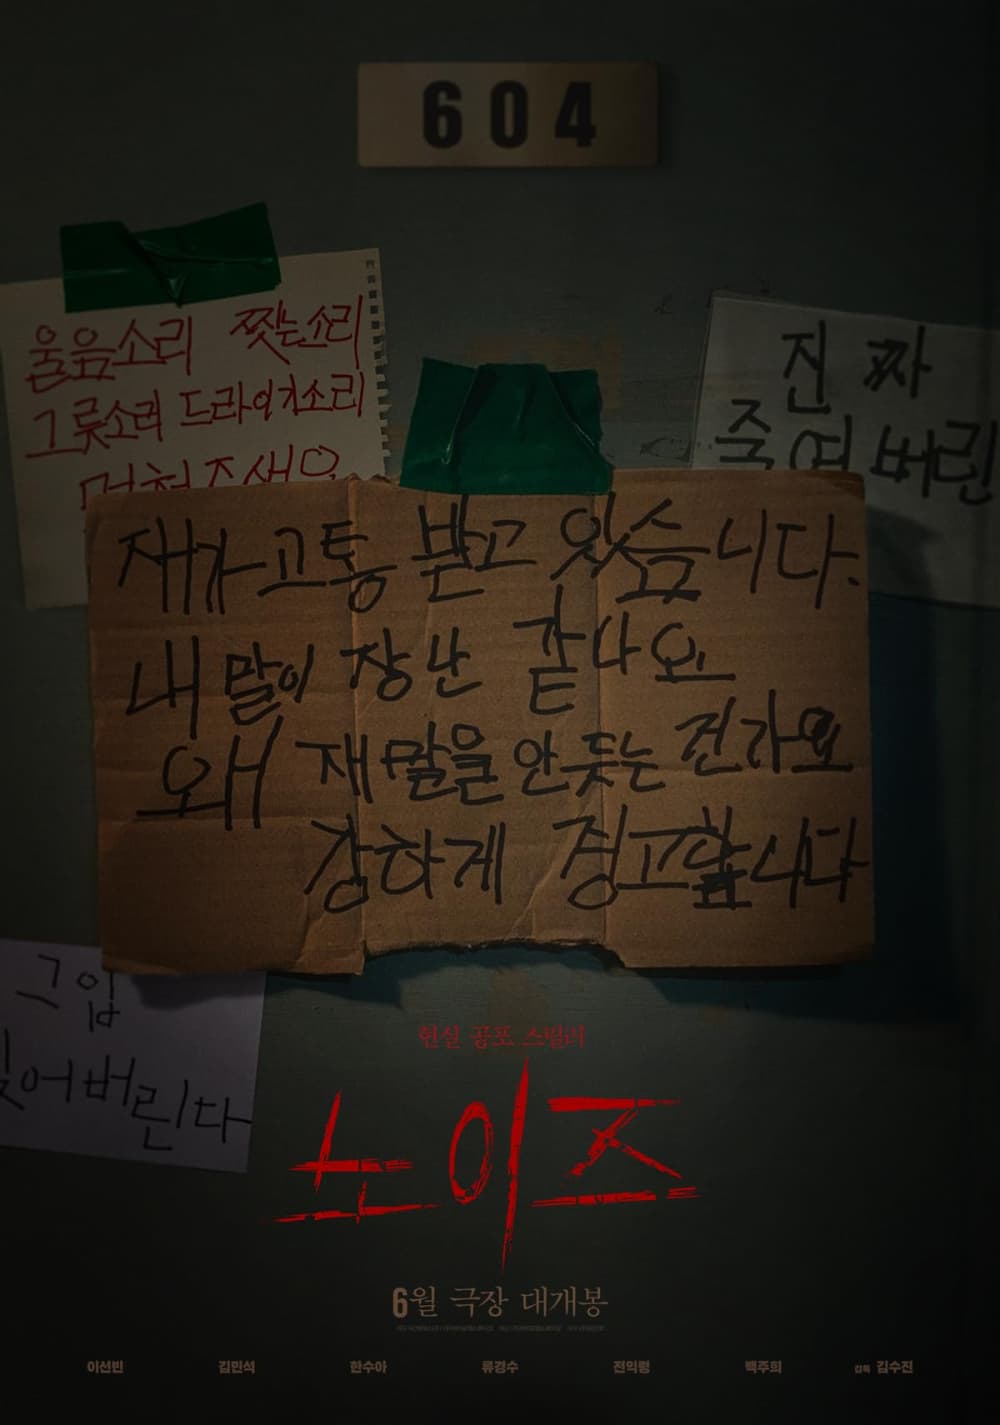 604
울음소리 찢는소리
그릇소리 드라이기소리
멈춰주세요
진짜
죽여버린
재가 고통 받고 있습니다.
내 말이 장난 같나요
왜 재 말을 안듯는 건가요
강하게 경고합니다
그입
찢어버린다
현실 공포 스릴러
노이즈
6월 극장 대개봉
이선빈 김민석 한수아 류경수 전익령 백주희 감독 김수진